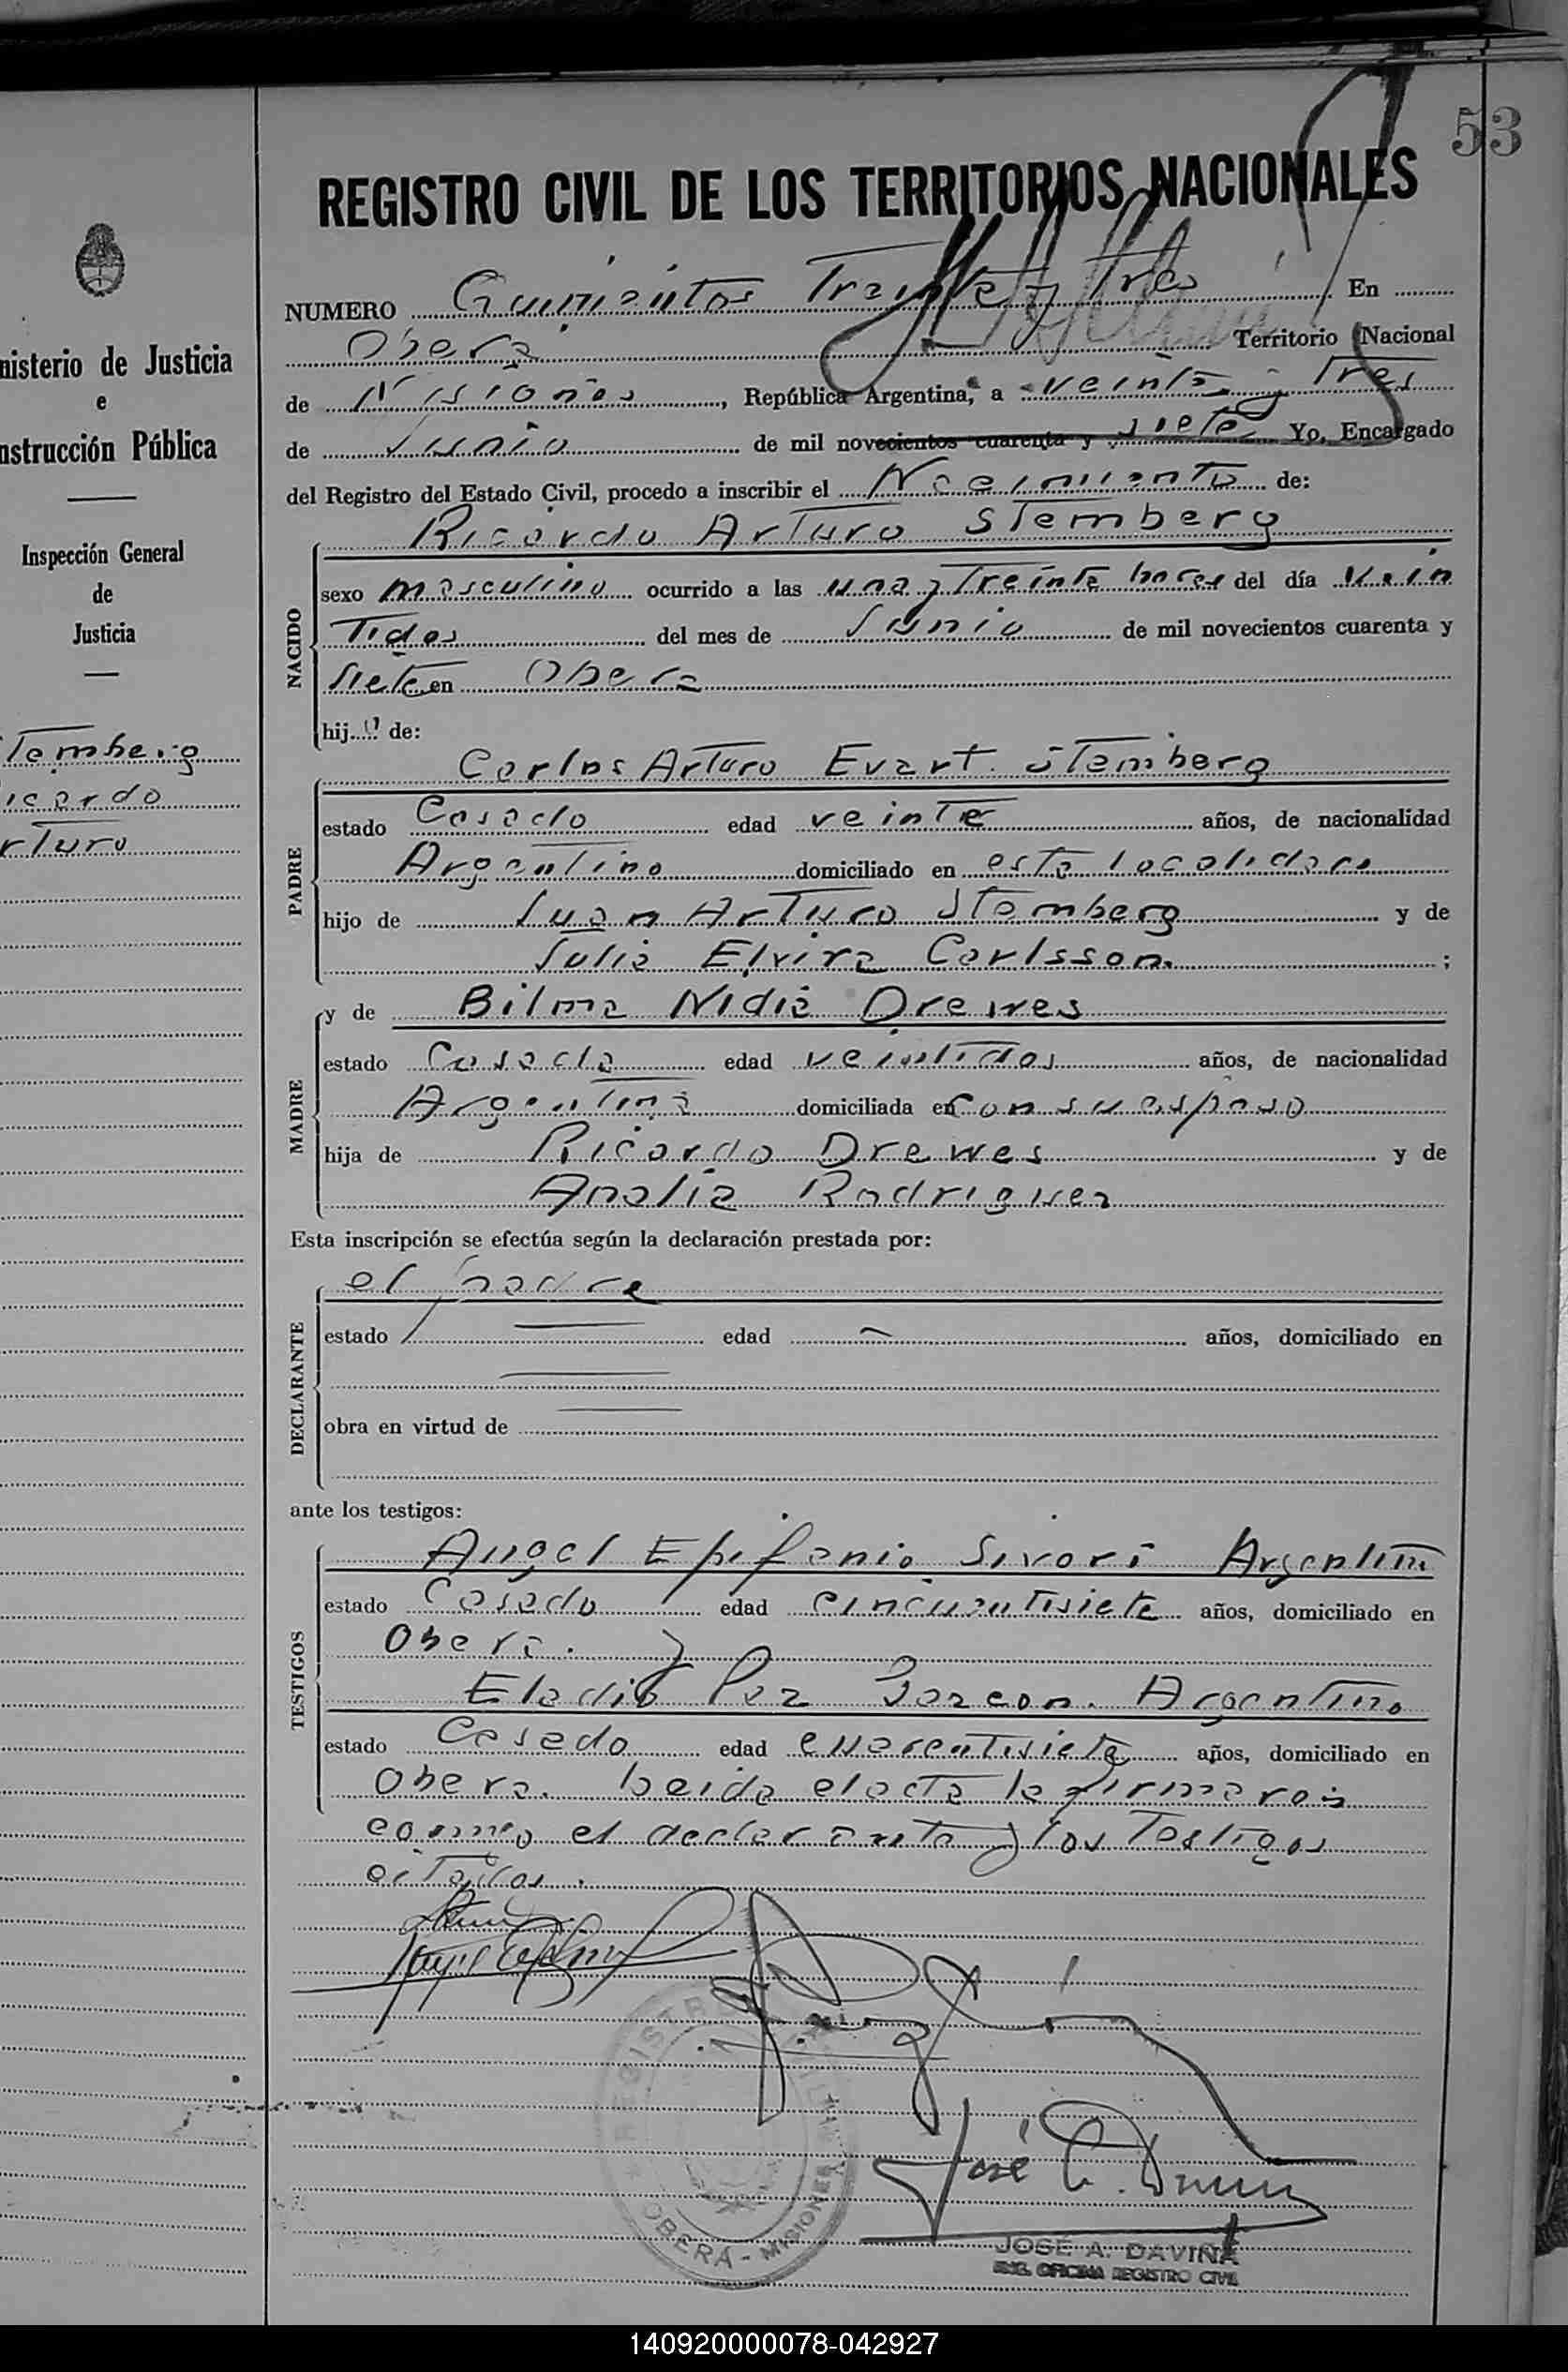 53
REGISTRO CIVIL DE LOS TERRITORIOS NACIONALES
NUMERO Quinientos Treinta y tres En
Oberá Territorio Nacional
de Misiones, República Argentina, a veinte y Tres
de Junio de mil novecientos cuarenta y siete Yo, Encargado
del Registro del Estado Civil, procedo a inscribir el Nacimiento de:
NACIDO
Ricardo Arturo Stemberg
sexo masculino ocurrido a las una y Treinta horas del día Vein
Tidos del mes de Junio de mil novecientos cuarenta y
siete en Obera
hijo de:
PADRE
Carlos Arturo Evart Stemberg
estado Casado edad veinte años, de nacionalidad
Argentino domiciliado en esta localidad
hijo de Juan Arturo Stemberg y de
Julia Elvira Carlsson.;
MADRE
y de Bilma Nidia Drewes
estado Casada edad veintidos años, de nacionalidad
Argentina domiciliada en con su esposo
hija de Ricardo Drewes y de
Analia Rodriguez
Esta inscripción se efectúa según la declaración prestada por:
DECLARANTE
el padre
estado edad años, domiciliado en
obra en virtud de
ante los testigos:
TESTIGOS
Angel Epifanio Sivori Argentino
estado Casado edad cincuentisiete años, domiciliado en
Obera. y
Eladio Paz Argentino
estado Casado edad cuarentisiete años, domiciliado en
Obera. Leida el acta la firman
como el declarante y los Testigos
citados.
REGISTRO CIVIL
OBERÁ - MISIONES
José A. Davin
JOSÉ A. DAVIÑA
ENC. OFICINA REGISTRO CIVIL
nisterio de Justicia
e
nstrucción Pública
Inspección General
de
Justicia
Temberg
icardo
rturo
140920000078-042927